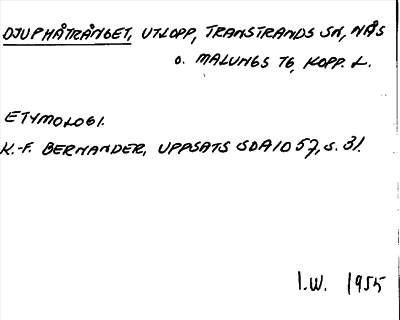 DJUPHÅTRÅNGET, UTLOPP, TRANSTRANDS SN, NÅS
O. MALUNGS TG, KOPP. L.
ETYMOLOGI.
K.-F. BERNANDER, UPPSATS SDA/D 57, S. 31.
I.W. 1955